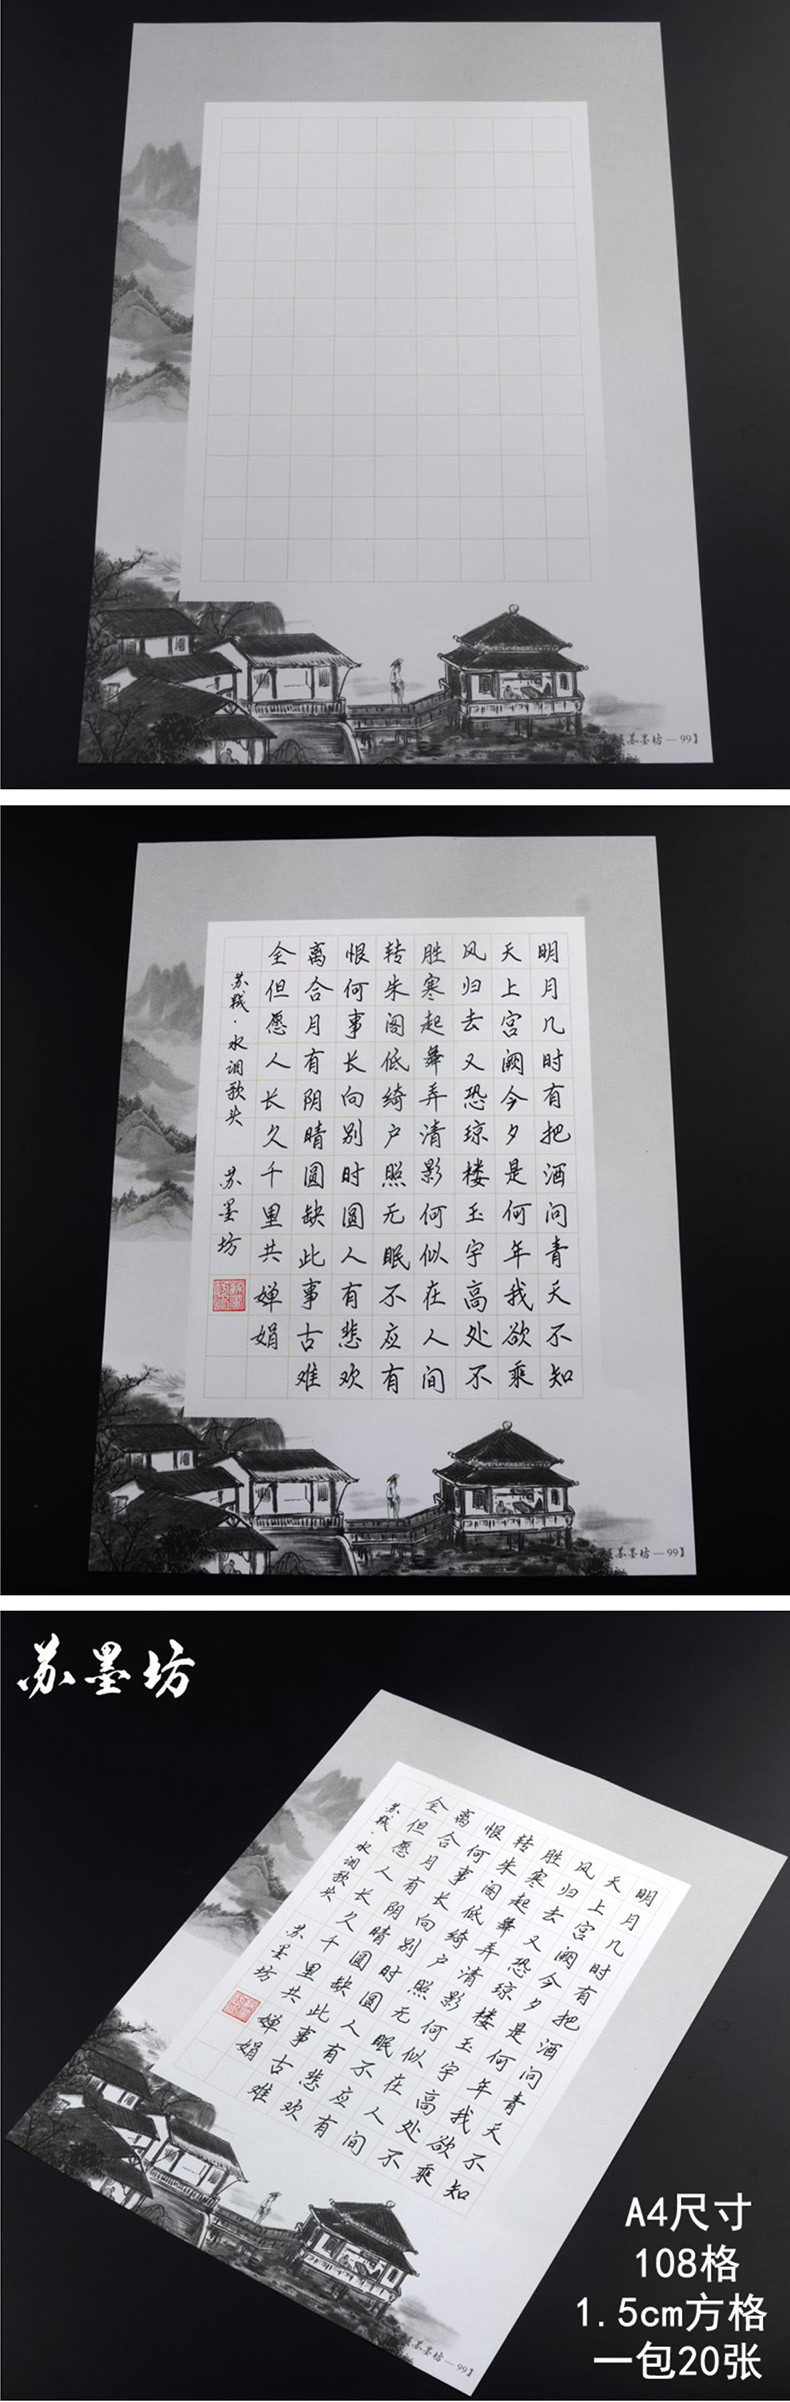 苏墨坊—99】
明月几时有把酒问青天不知
天上宫阙今夕是何年我欲乘
风归去又恐琼楼玉宇高处不
胜寒起舞弄清影何似在人间
转朱阁低绮户照无眠不应有
恨何事长向别时圆人有悲欢
离合月有阴晴圆缺此事古难
全但愿人长久千里共婵娟
苏轼·水调歌头 苏墨坊
苏墨坊—99】
苏墨坊
明月几时有把酒问青天不知
天上宫阙今夕是何年我欲乘
风归去又恐琼楼玉宇高处不
胜寒起舞弄清影何似在人间
转朱阁低绮户照无眠不应有
恨何事长向别时圆人有悲欢
离合月有阴晴圆缺此事古难
全但愿人长久千里共婵娟
苏轼·水调歌头 苏墨坊
苏墨坊—99】
A4尺寸
108格
1.5cm方格
一包20张